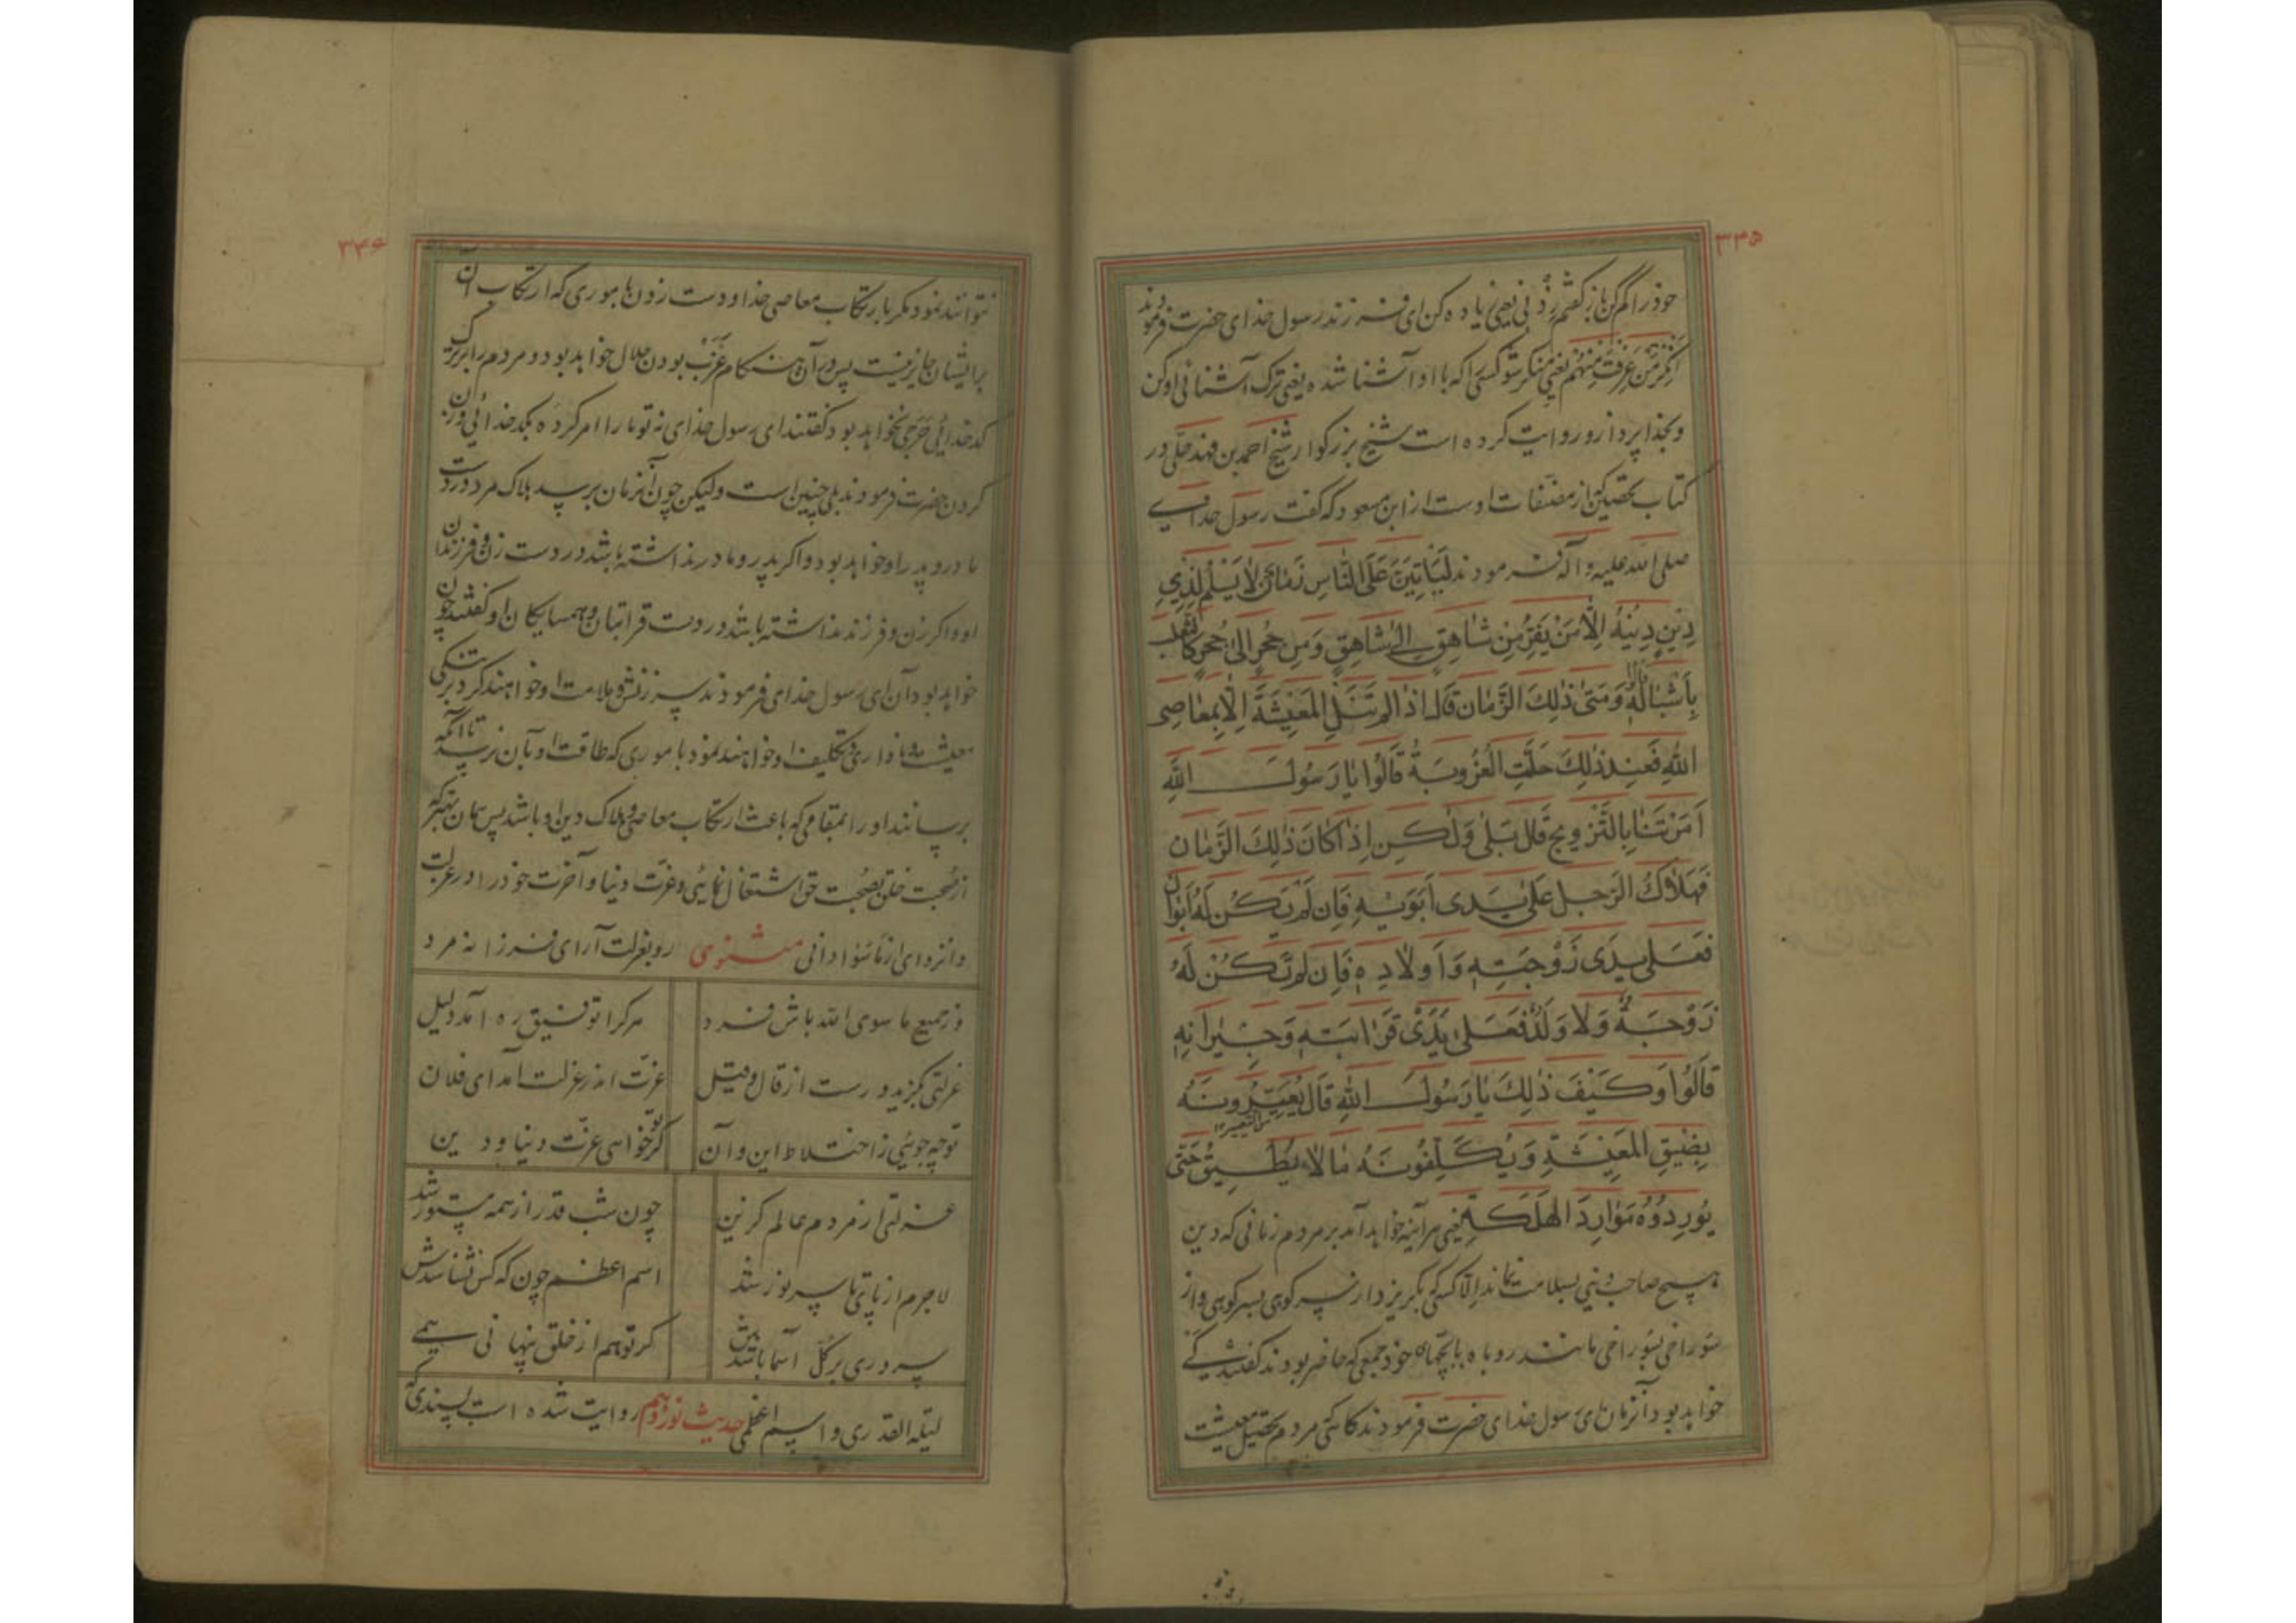 ۳۴۵
خود را گم کن باز گفتم زِدْنی یعنی زیاده کن ای فرزند رسول خدای حضرت فرمودند
اَنْکِرْ مَنْ عَرَفْتَ مِنْهُم یعنی منکر شو کسی را که با او آشنا شده یعنی ترک آشنائی او کن
و بخدا پرداز و روایت کرده است شیخ بزرگوار شیخ احمد بن فهد حلّی در
کتاب تحصین که از مصنّفات اوست از ابن مسعود که گفت رسول خدای
صلی الله علیه و آله فرمودند لَیَأتِیَنَّ عَلَی النَّاسِ زَمَانٌ لَا یَسْلَمُ لِذِی
دِینٍ دِینُهُ اِلَّا مَنْ یَفِرُّ مِنْ شَاهِقٍ اِلیٰ شَاهِقٍ وَمِن حُجرٍ اِلیٰ حُجرٍ کَالثَّعلَب
بِاَشْبَالِهِ قالوا وَمَتیٰ ذٰلِكَ الزَّمَان قَالَ اِذَا لَم تُنَلِ المَعِیْشَةُ اِلَّا بِمَعَاصِی
اللهِ فَعِندَ ذٰلِكَ حَلَّتِ العُزُوبَةُ قَالُوا یَا رَسُولَ اللهِ
اَمَرْتَنَا بِالتَّزْوِیجِ قَالَ بَلیٰ وَلٰکِن اِذَا کَانَ ذٰلِكَ الزَّمَان
فَهَلَاكُ الرَّجُلِ عَلیٰ یَدَی اَبَوَیْهِ فَاِن لَمْ یَکُن لَهُ اَبَوَان
فَعَلیٰ یَدَی زَوْجَتِهِ وَاَولَادِهِ فَاِن لَم تَکُنْ لَهُ
زَوْجَةٌ وَلَا وَلَدٌ فَعَلیٰ یَدَیْ قَرَابَتِهِ وَجِیْرَانِهِ
قَالُوا وَکَیْفَ ذٰلِكَ یَا رَسُولَ اللهِ قَالَ یُعَیِّرُونَهُ
بِضِیْقِ المَعِیْشَةِ وَیُکَلِّفُونَهُ مَا لَا یُطِیقُ حَتّیٰ
یُورِدُوهُ مَوَارِدَ الهَلَکَةِ یعنی هرآینه خواهد آمد بر مردم زمانی که دین
هیچ صاحب دینی بسلامت نماند الّا کسی که بگریزد از سر کوهی بسر کوهی و از
سوراخی بسوراخی مانند روباه با بچّهای خود جمعی که حاضر بودند گفتند کی
خواهد بود آنزمان ای رسول خدای حضرت فرمودند گاهی که مردم تحصیل معیشت
۳۴۶
نتوانند نمود مگر بارتکاب معاصی خدا و دست زدن بأموری که ارتکاب آن
برایشان جایز نیست پس در آن هنگام عَزَب بودن حلال خواهد بود و مردم را بر ترک
کدخدائی حَرَجی نخواهد بود گفتند ای رسول خدای نه تو ما را امر کرده بکدخدائی و زن
کردن حضرت فرمودند بلی چنین است ولیکن چون آنزمان برسد هلاک مرد در دست
مادر و پدر او خواهد بود و اگر پدر و مادر نداشته باشد در دست زن و فرزندان
او و اگر زن و فرزند نداشته باشد در دست قرابتان و همسایگان او گفتند چون
خواهد بود آن ای رسول خدای فرمودند سرزنش و ملامت او خواهند کرد بر تنگی
معیشت و ناداری و تکلیف او خواهند نمود باموری که طاقت او بآن نرسد تا آنکه
برسانند او را بمقامی که باعث ارتکاب معاصی و هلاک دین او باشد پس همان بهتر که
از صحبت خلق بصحبت حق اشتغال نمائی و عزّت دنیا و آخرت خود را در عزلت
و انزوای از ماسوا دانی مثنوی رو بعزلت آر ای فرزانه مرد
وز جمیع ما سوی الله باش فرد هرکرا توفیق ره آمد دلیل
عزلتی بگزید و رست از قال و قیل عزّت اندر عزلت آمد ای فلان
تو چه جوئی ز اختلاط این و آن گر تو خواهی عزّت دنیا و دین
عزلتی از مردم عالم گزین چون شب قدر از همه مستور شد
لاجرم از پای تا سر نور شد اسم اعظم چون که کس نشناسدش
سروری بر کلّ اسما باشدش گر تو هم از خلق پنهانی همی
لیلة القدری و اسم اعظمی حدیث نوزدهم روایت شده است بسندی که